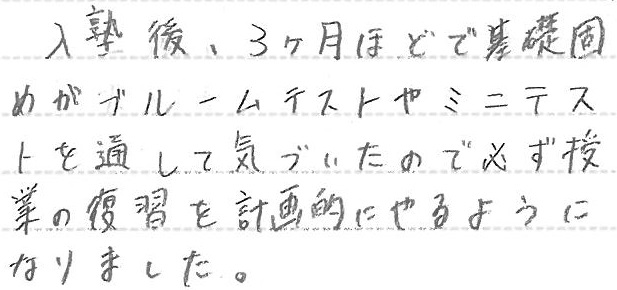 入塾後、3ケ月ほどで基礎固
めがブルームテストやミニテス
トを通して気づいたので必ず授
業の復習を計画的にやるように
なりました。